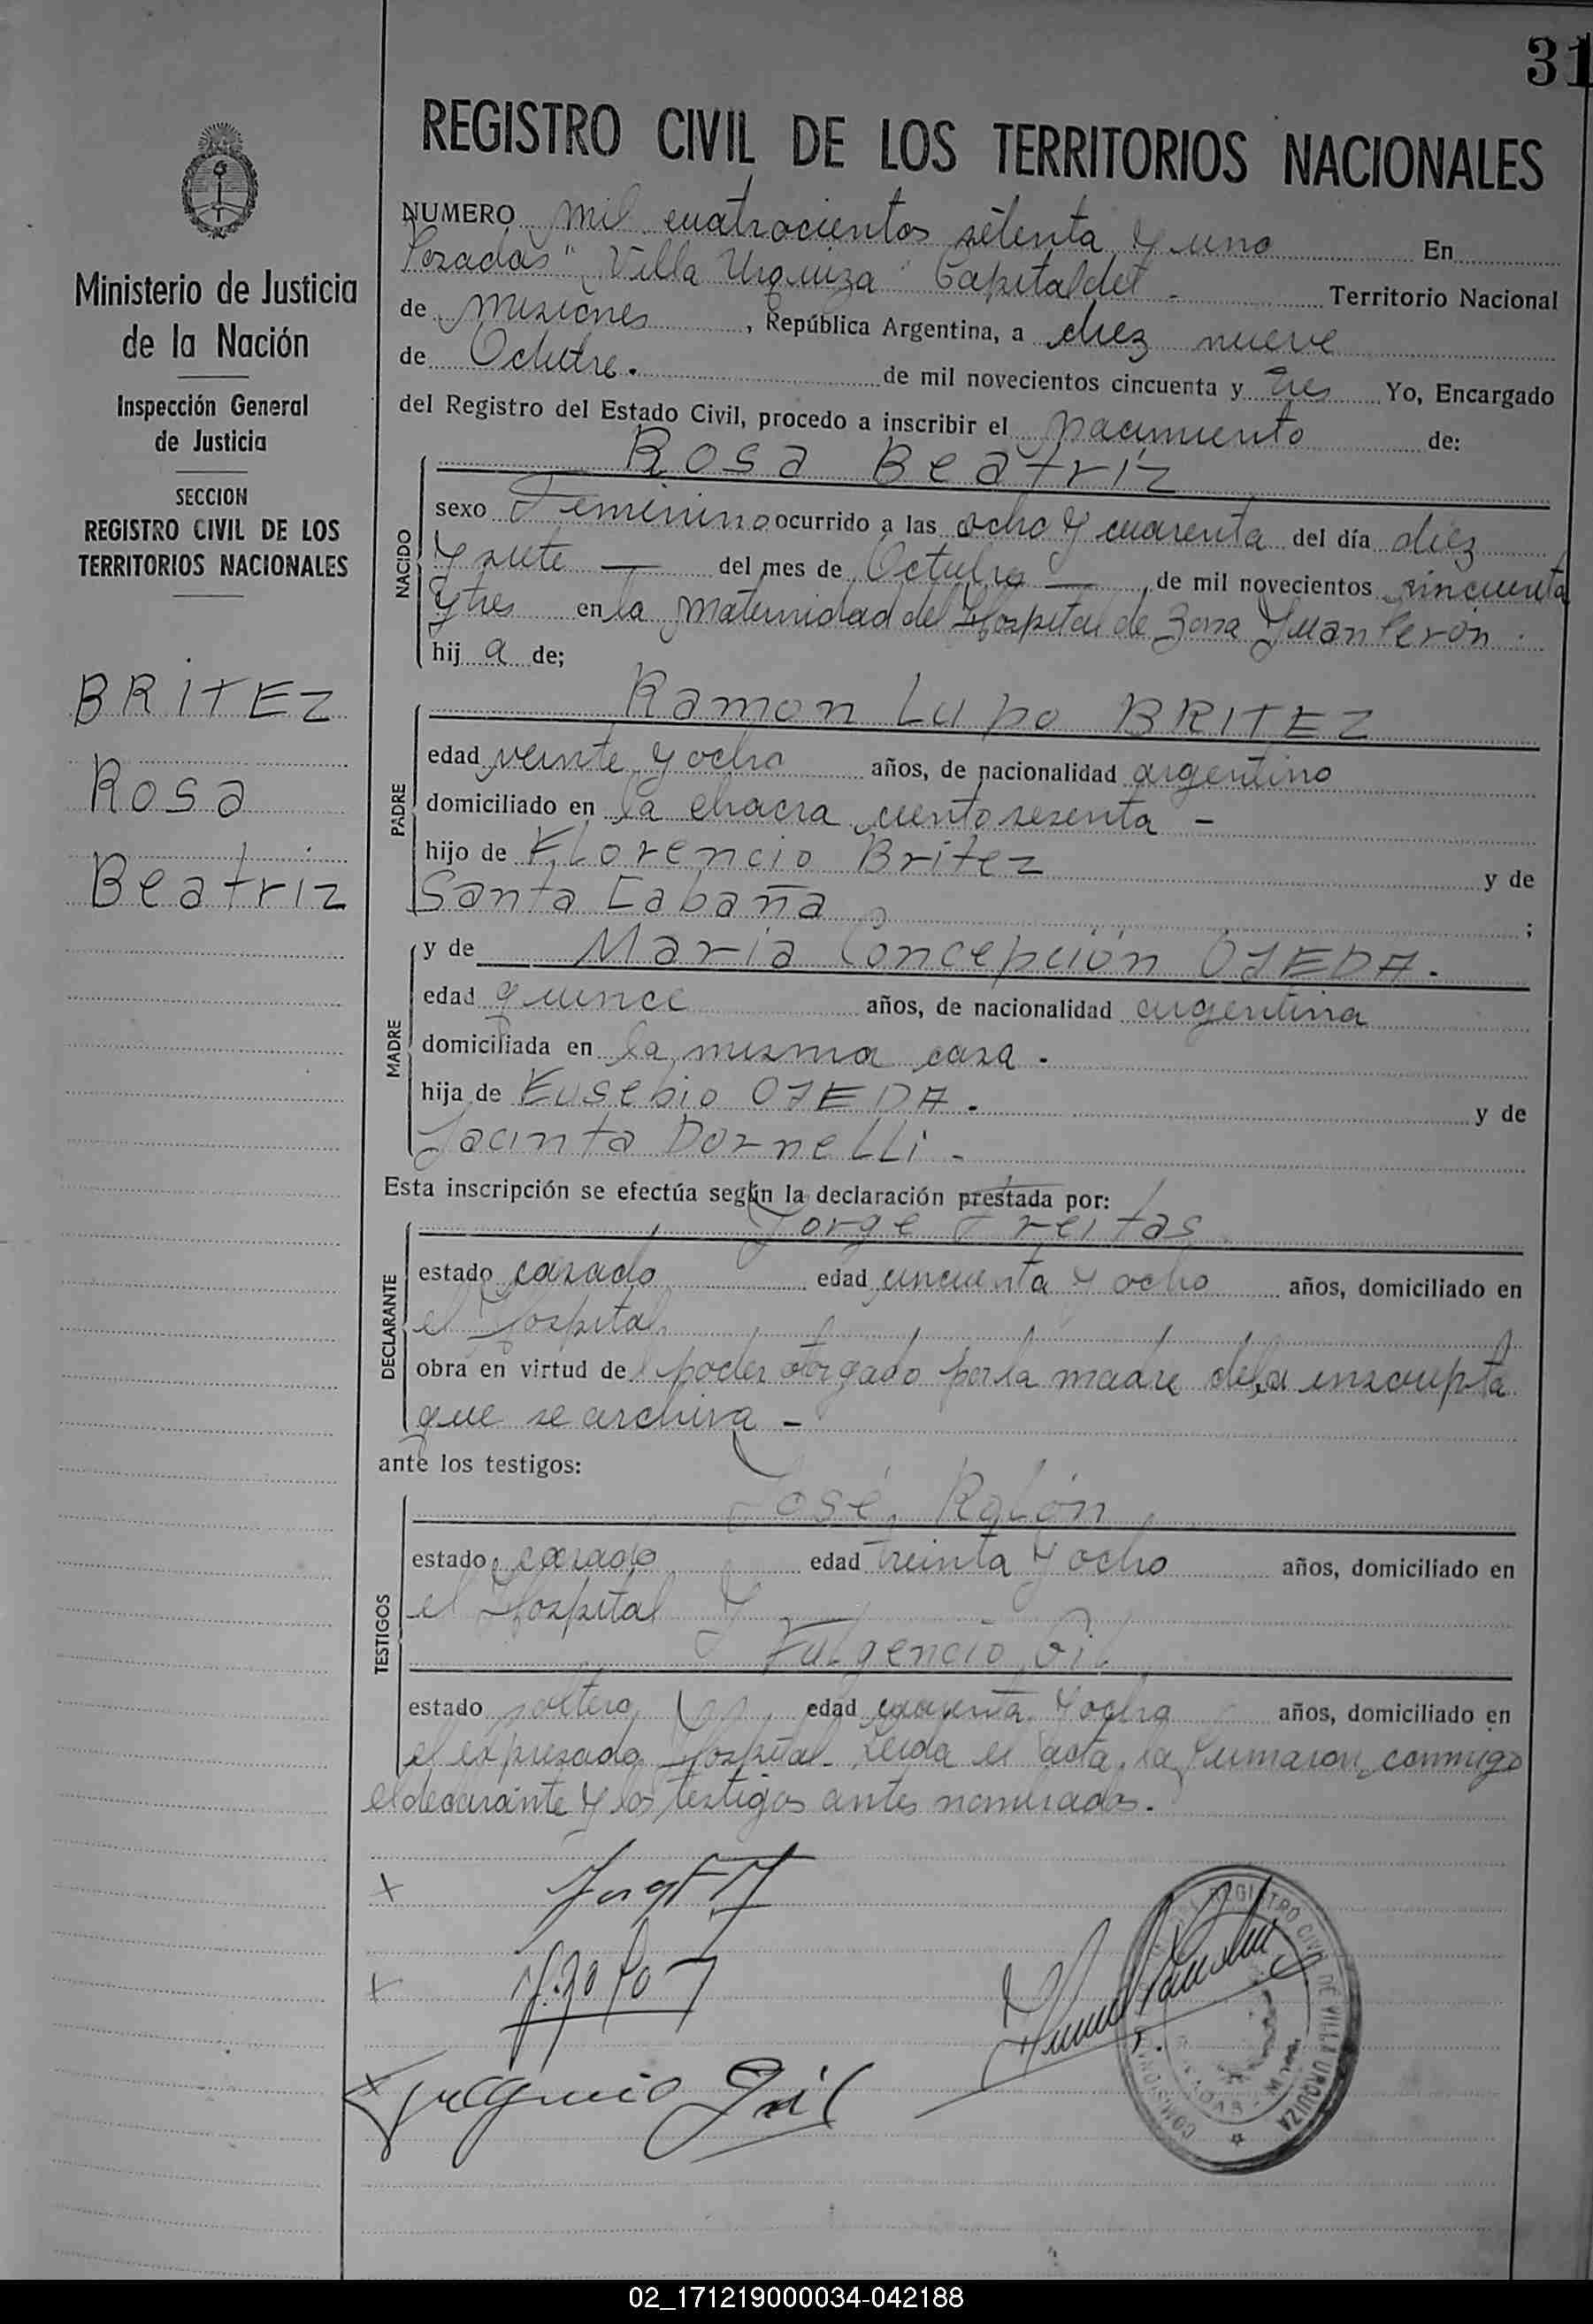 31
REGISTRO CIVIL DE LOS TERRITORIOS NACIONALES
Ministerio de Justicia
de la Nación
Inspección General
de Justicia
SECCION
REGISTRO CIVIL DE LOS
TERRITORIOS NACIONALES
BRITEZ
Rosa
Beatriz
NUMERO mil cuatrocientos setenta y uno En
Posadas "Villa Urquiza" Capital del - Territorio Nacional
de Misiones, República Argentina, a diez nueve
de Octubre. de mil novecientos cincuenta y tres Yo, Encargado
del Registro del Estado Civil, procedo a inscribir el nacimiento de:
Rosa Beatriz
NACIDO
sexo Femenino ocurrido a las ocho y cuarenta del día diez
y siete — del mes de Octubre — de mil novecientos cincuenta
y tres en la maternidad del Hospital de Zona Juan Perón.
hij a de;
Ramon Lupo BRITEZ
PADRE
edad veinte y ocho años, de nacionalidad argentino
domiciliado en la chacra ciento sesenta -
hijo de Florencio Britez y de
Santa Cabaña ;
y de Maria Concepción OJEDA.
MADRE
edad quince años, de nacionalidad argentina
domiciliada en la misma casa.
hija de Eusebio OJEDA. y de
Jacinta Dornelli -
Esta inscripción se efectúa según la declaración prestada por:
Jorge Freitas
DECLARANTE
estado casado edad cincuenta y ocho años, domiciliado en
el Hospital
obra en virtud del poder otorgado por la madre de la inscripta
que se archiva -
ante los testigos:
José Rolón
TESTIGOS
estado casado edad treinta y ocho años, domiciliado en
el Hospital y
Fulgencio Gil
estado soltero edad cuarenta y ocho años, domiciliado en
el expresado Hospital. Leida el acta, la firmaron conmigo
el declarante y los testigos antes nombrados.
Fulgencio Gil
REGISTRO CIVIL DE VILLA URQUIZA
02_171219000034-042188